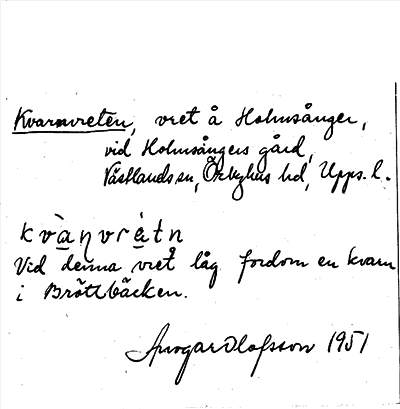 Kvarnvreten, vret å Holmsånger,
vid Holmsångers gård,
Västlands sn, Örbyhus hd, Upps. l.
kvàṇvrétn
Vid denna vret låg fordom en kvarn
i Bröttbäcken.
Olofsson 1951